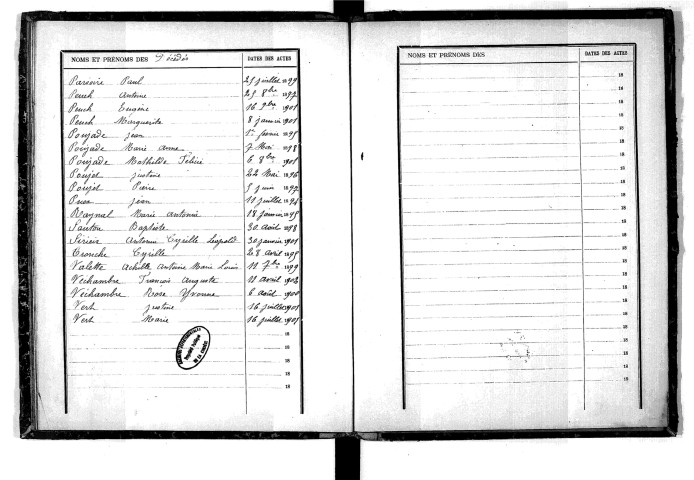 NOMS ET PRÉNOMS DES Décédés DATES DES ACTES
Parsoire Paul 25 juillet 1899
Peuch Antoine 25 8bre 1897
Peuch Eugène 16 9bre 1901
Peuch Marguerite 8 janvier 1901
Poujade Jean 1er février 1895
Poujade Marie Anne 7 Mai 1898
Poujade Mathilde Félicie 6 8bre 1901
Poujet Justine 24 Mai 1896
Poujet Pierre 5 juin 1897
Puex Jean 11 juillet 1894
Raynal Marie Antonie 18 janvier 1895
Sauton Baptiste 30 Août 1898
Sérieix Antoine Cyrille Léopold 30 janvier 1901
Tronche Cyrille 28 avril 1895
Valette Achille Antoine Marie Louis 11 7bre 1899
Véchambre François Auguste 11 avril 1902
Véchambre Rose Yvonne 6 août 1900
Vert Justine 16 juillet 1901
Vert Marie 16 juillet 1901
18
18
18
18
18
NOMS ET PRÉNOMS DES DATES DES ACTES
18
18
18
18
18
18
18
18
18
18
18
18
18
18
18
18
18
18
18
18
18
18
18
18